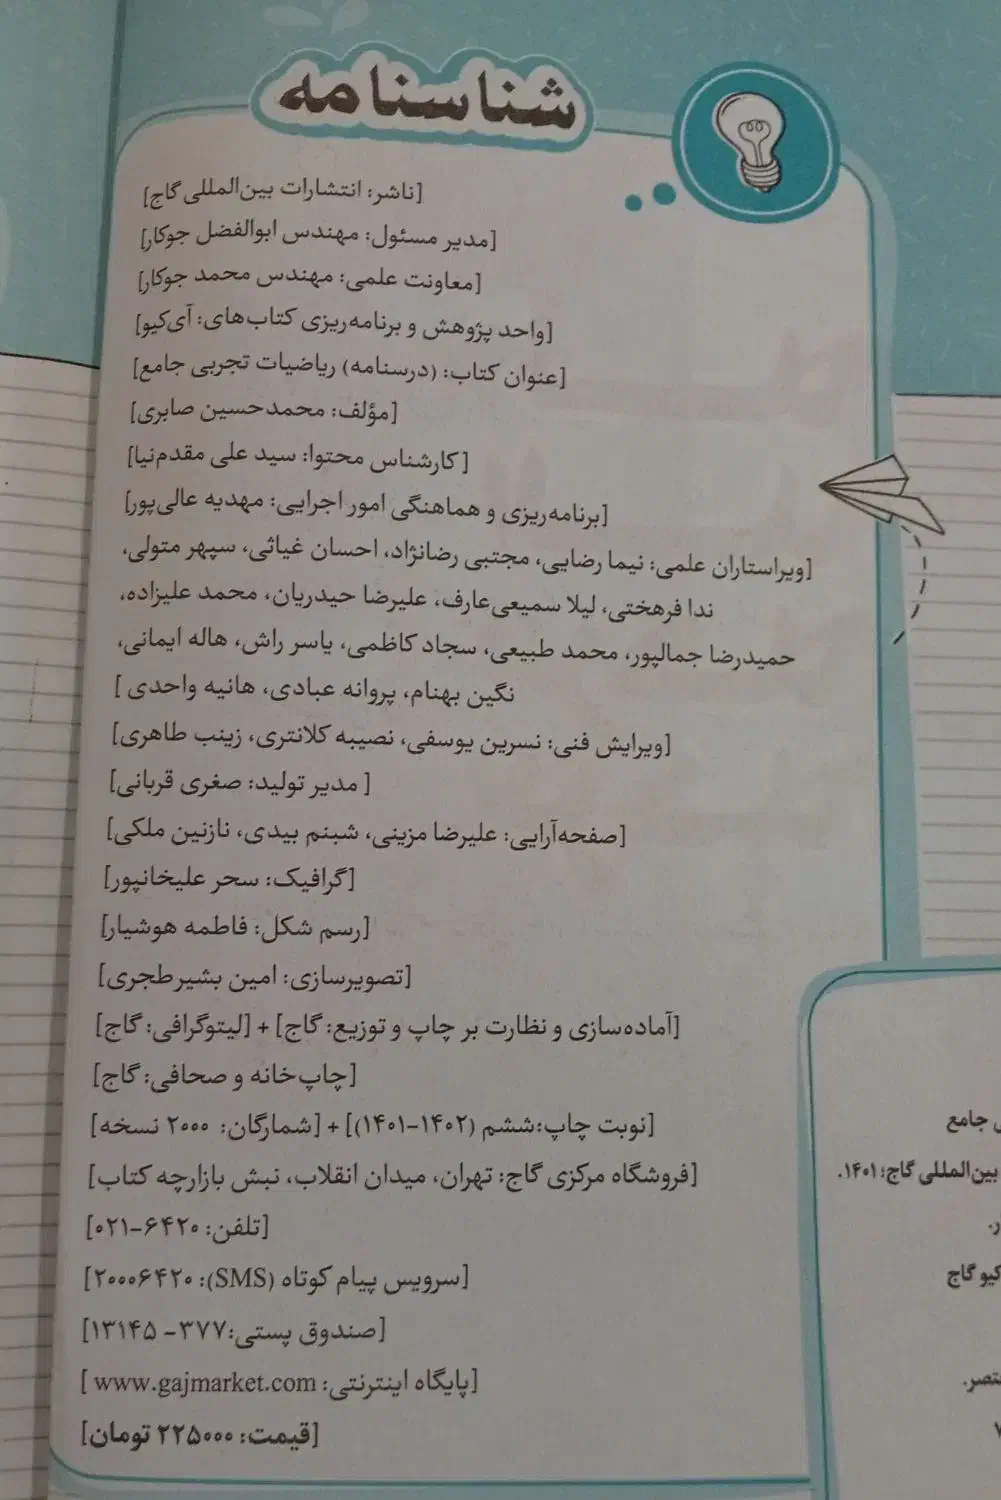 شناسنامه
[ناشر: انتشارات بین‌المللی گاج]
[مدیر مسئول: مهندس ابوالفضل جوکار]
[معاونت علمی: مهندس محمد جوکار]
[واحد پژوهش و برنامه‌ریزی کتاب‌های: آی‌کیو]
[عنوان کتاب: (درسنامه) ریاضیات تجربی جامع]
[مؤلف: محمدحسین صابری]
[کارشناس محتوا: سید علی مقدم‌نیا]
[برنامه‌ریزی و هماهنگی امور اجرایی: مهدیه عالی‌پور]
[ویراستاران علمی: نیما رضایی، مجتبی رضانژاد، احسان غیاثی، سپهر متولی،
ندا فرهختی، لیلا سمیعی‌عارف، علیرضا حیدریان، محمد علیزاده،
حمیدرضا جمالپور، محمد طبیعی، سجاد کاظمی، یاسر راش، هاله ایمانی،
نگین بهنام، پروانه عبادی، هانیه واحدی ]
[ویرایش فنی: نسرین یوسفی، نصیبه کلانتری، زینب طاهری]
[ مدیر تولید: صغری قربانی]
[صفحه‌آرایی: علیرضا مزینی، شبنم بیدی، نازنین ملکی]
[گرافیک: سحر علیخانپور]
[رسم شکل: فاطمه هوشیار]
[تصویرسازی: امین بشیرطجری]
[آماده‌سازی و نظارت بر چاپ و توزیع: گاج] + [لیتوگرافی: گاج]
[چاپ‌خانه و صحافی: گاج]
[نوبت چاپ:ششم (۱۴۰۲-۱۴۰۱)] + [شمارگان: ۲۰۰۰ نسخه]
[فروشگاه مرکزی گاج: تهران، میدان انقلاب، نبش بازارچه کتاب]
[تلفن: ۶۴۲۰-۰۲۱]
[سرویس پیام کوتاه (SMS): ۲۰۰۰۶۴۲۰]
[صندوق پستی:۳۷۷- ۱۳۱۴۵]
[پایگاه اینترنتی: www.gajmarket.com ]
[قیمت: ۲۲۵۰۰۰ تومان]
جامع
بین‌المللی گاج؛ ۱۴۰۱.
کیو گاج